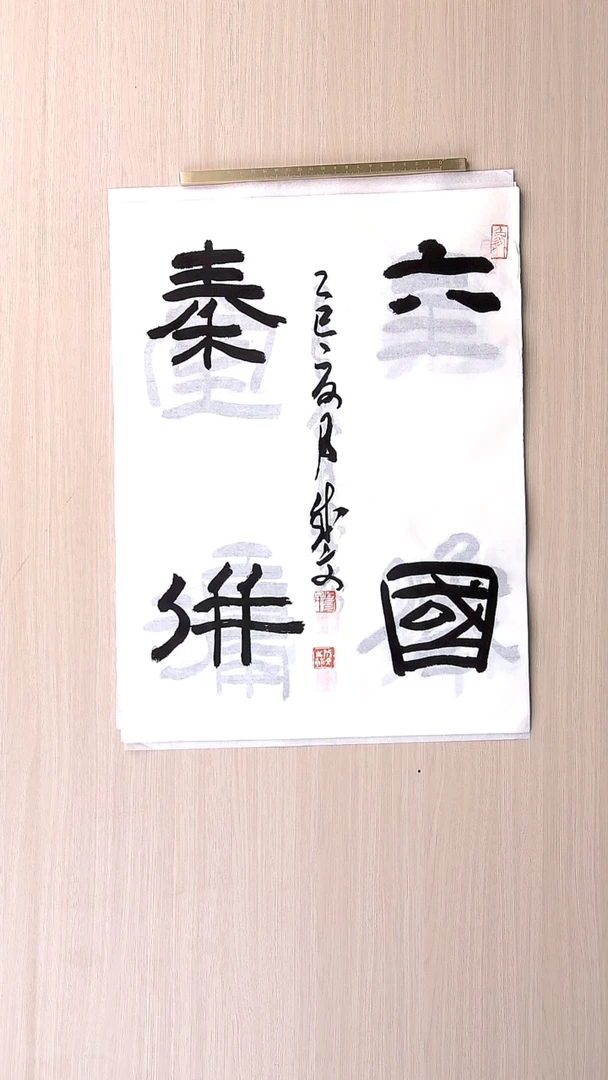 六國
秦併
乙巳夏月